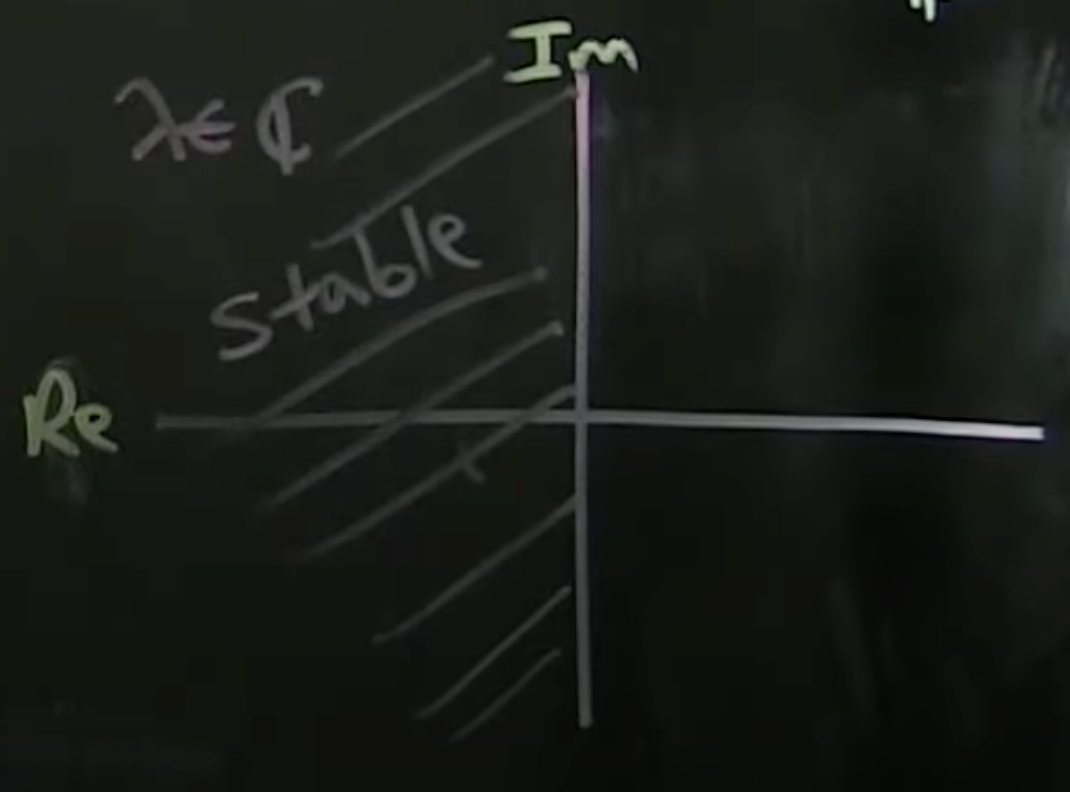 Im
λ∈ ℂ
stable
Re